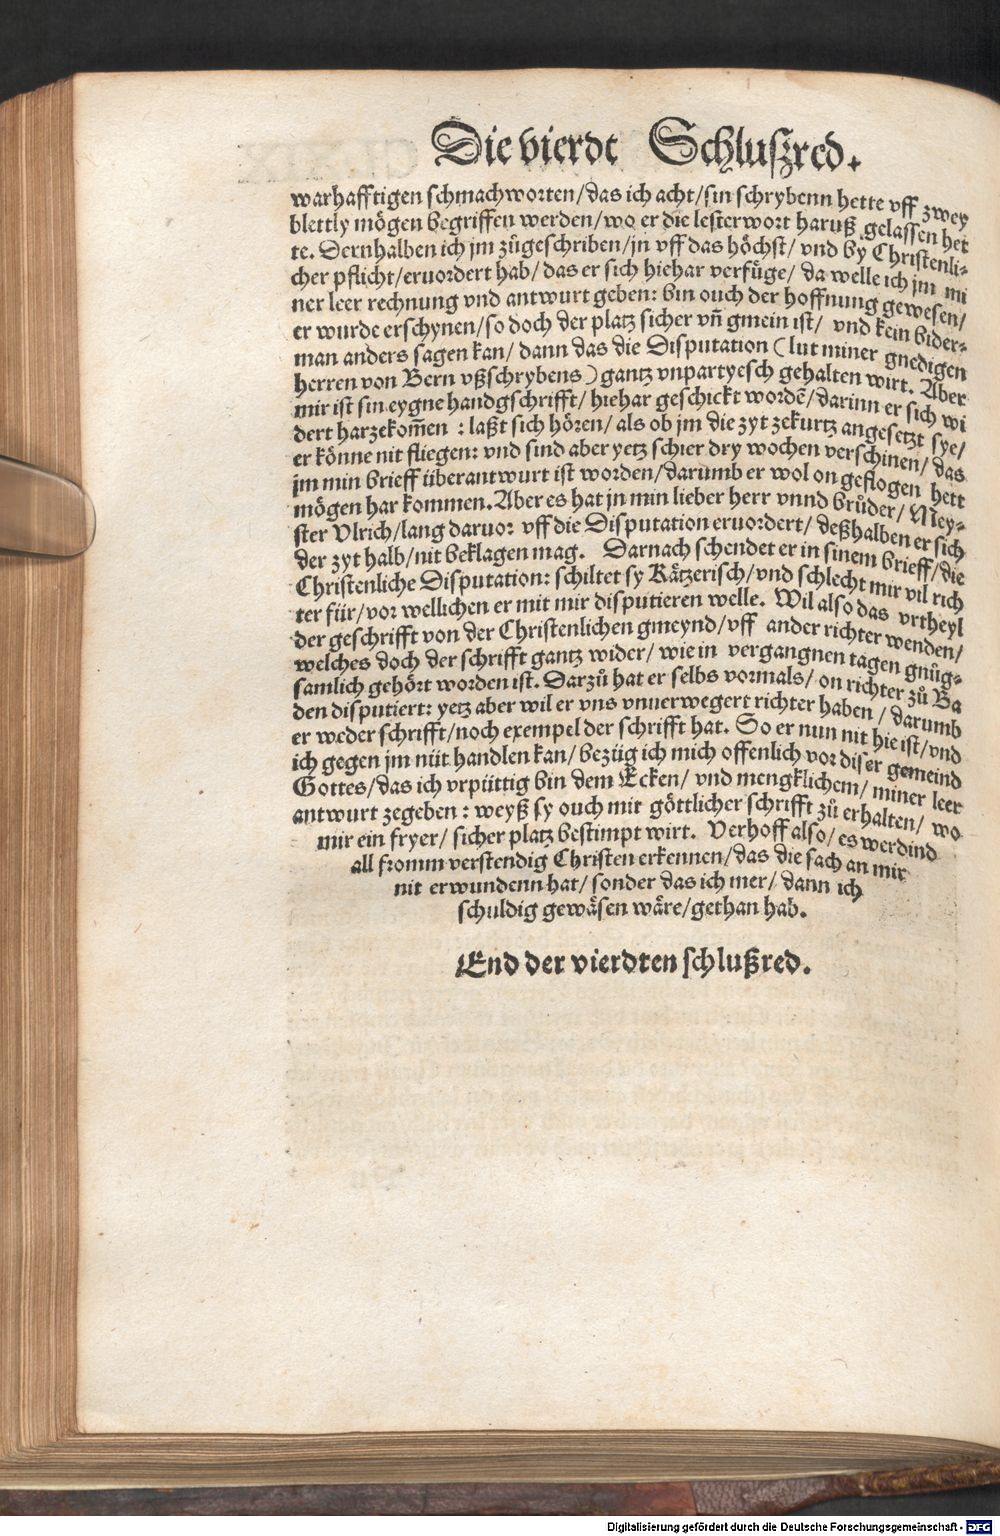 Die vierdt Schlußred.
warhafftigen schmachworten/das ich acht/sin schrybenn hette vff zwey
blettly mögen begriffen werden/wo er die lesterwort haruß gelassen het
te. Dernhalben ich jm zůgeschriben/jn vff das höchst/ vnd by Christenli-
cher pflicht/eruordert hab/das er sich hiehar verfüge/ da welle ich jm mi
ner leer rechnung vnd antwurt geben: bin ouch der hoffnung gewesen/
er wurde erschynen/so doch der platz sicher vñ gmein ist/ vnd kein bider-
man anders sagen kan/ dann das die Disputation (lut miner gnedigen
herren von Bern vßschrybens) gantz vnpartyesch gehalten wirt. Aber
mir ist sin eygne handgschrifft/ hiehar geschickt wordẽ/darinn er sich wi
dert harzekom̃en : laßt sich hören/ als ob jm die zyt zekurtz angesetzt sye/
er könne nit fliegen: vnd sind aber yetz schier dry wochen verschinen/ das
jm min brieff überantwurt ist worden/darumb er wol on geflogen hett
mögen har kommen. Aber es hat jn min lieber herr vnnd brůder/ Mey-
ster Vlrich/lang daruor vff die Disputation eruordert/ deßhalben er sich
der zyt halb/nit beklagen mag. Darnach schendet er in sinem brieff/die
Christenliche Disputation: schiltet sy Kätzerisch/vnd schlecht mir vil rich
ter für/vor wellichen er mit mir disputieren welle. Wil also das vrtheyl
der geschrifft von der Christenlichen gmeynd/vff ander richter wenden/
welches doch der schrifft gantz wider/ wie in vergangnen tagen gnůg-
samlich gehört worden ist. Darzů hat er selbs vormals/ on richter zů Ba
den disputiert: yetz aber wil er vns vnuerwegert richter haben / darumb
er weder schrifft/noch exempel der schrifft hat. So er nun nit hie ist/vnd
ich gegen jm nüt handlen kan/bezüg ich mich offenlich vor diser gemeind
Gottes/das ich vrpüttig bin dem Ecken/ vnd mengklichem/ miner leer
antwurt zegeben : weyß sy ouch mit göttlicher schrifft zů erhalten/ wo
mir ein fryer/ sicher platz bestimpt wirt. Verhoff also/es werdind
all fromm verstendig Christen erkennen/das die sach an mir
nit erwundenn hat/ sonder das ich mer/ dann ich
schuldig gewäsen wäre/gethan hab.
End der vierdten schlußred.
Digitalisierung gefördert durch die Deutsche Forschungsgemeinschaft - DFG